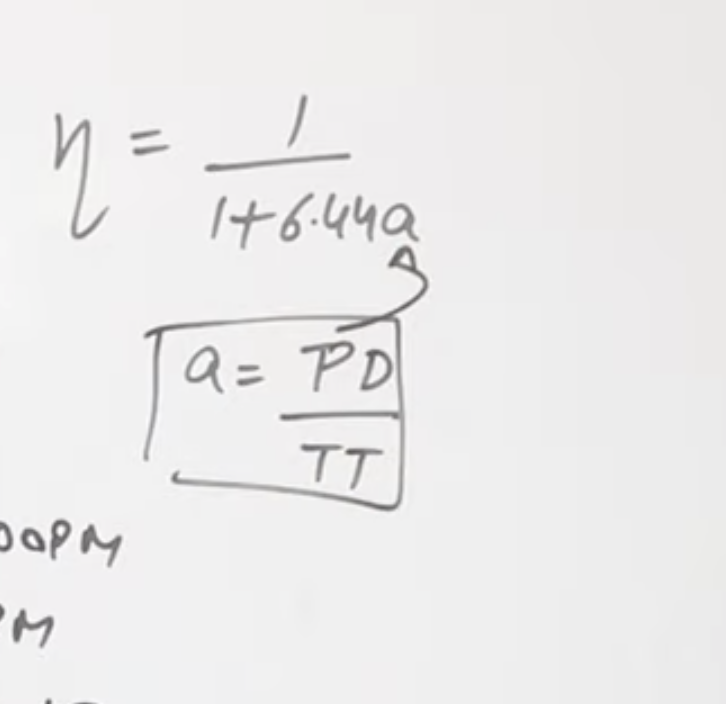 η = 1
1+6.44a
a = PD
TT
00PM
PM